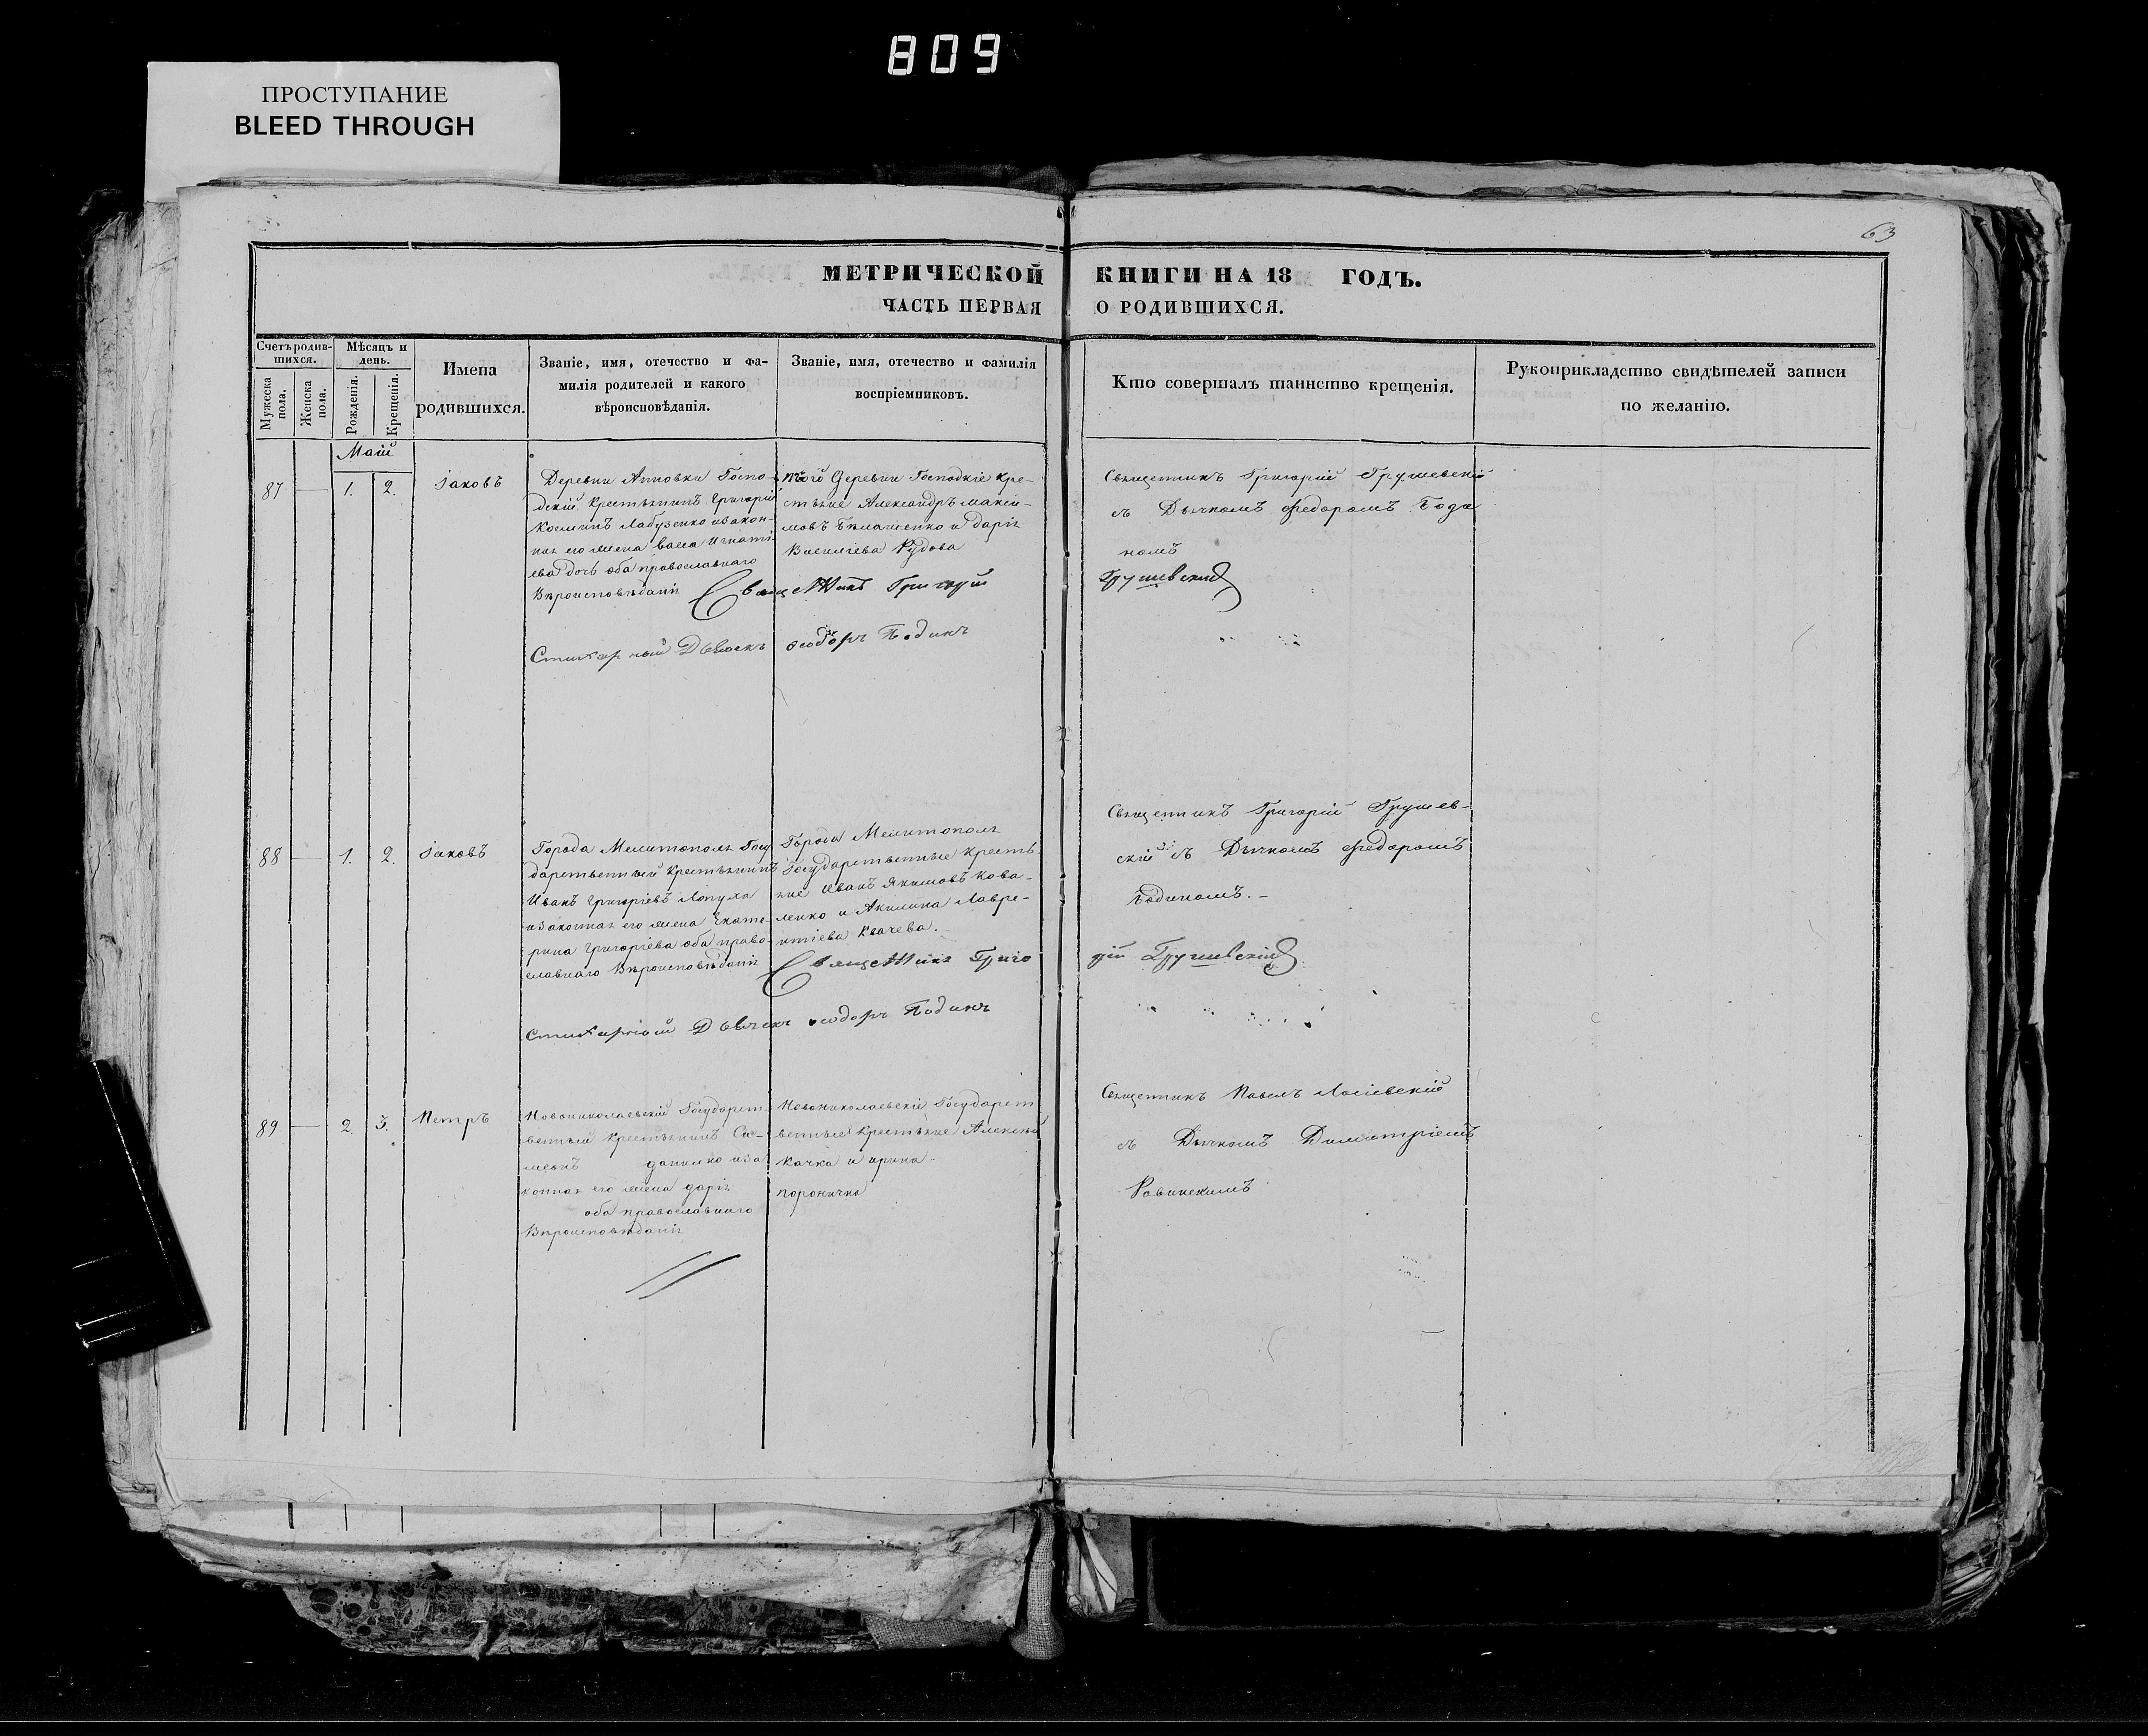 809
ПРОСТУПАНИЕ
BLEED THROUGH
63
МЕТРИЧЕСКОЙ КНИГИ НА 18 ГОДЪ.
ЧАСТЬ ПЕРВАЯ О РОДИВШИХСЯ.
Счетъ родив-
шихся.
Мужеска
пола.
Женска
пола.
Мѣсяцъ и
день.
Рожденія.
Крещенія.
Имена
родившихся.
Званіе, имя, отечество и фа-
милія родителей и какого
вѣроисновѣданія.
Званіе, имя, отечество и фамилія
воспріемниковъ.
Кто совершалъ таинство крещенія.
Рукоприкладство свидѣтелей записи
по желанію.
Маій
87 — 1. 2. Іаковъ
Деревни Анновки Госпо-
дскій Крестьянинъ Григорій
Косминъ Лабузенко и закон-
ная его жена Васса Игнаті-
ева дочь оба православнаго
Вѣроисповѣданія
той Деревни Господскіе Кре-
стьяне Александръ Макси-
мовъ Бѣлашенко и Дарія
Василіева Рудова
Священникъ Григорій Грушевскій
съ Дьячкомъ Федоромъ Боди
номъ
Священникъ Григорій Грушевскій
Стихарный Дьячекъ Ѳеодоръ Бодинъ
88 — 1. 2. Іаковъ
Города Мелитополя Госу
дарственный Крестьянинъ
Иванъ Григоріевъ Лопуха
и законная его жена Екате-
рина Григоріева оба право
славнаго Вѣроисповѣданія
Города Мелитополя
Государственные Кресть-
яне Иванъ Якимовъ Кова-
ленко и Акилина Лавре-
нтіева Квачева.
Священникъ Григорій Грушев-
скій съ Дьячкомъ Федоромъ
Бодиномъ. –
Священникъ Григо рій Грушевскій
Стихарный Дьячекъ Ѳеодоръ Бодинъ
89 — 2. 3. Петръ
Новониколаевскій Государст
венный Крестьянинъ Си-
меонъ Данилко и за
конная его жена Дарія
оба православнаго
Вѣроисповѣданія
Новониколаевскіе Государст
венные Крестьяне Алексѣй
Качка и Ирина
Священникъ Павелъ
съ Дьячкомъ Димитріемъ
Ровинскимъ